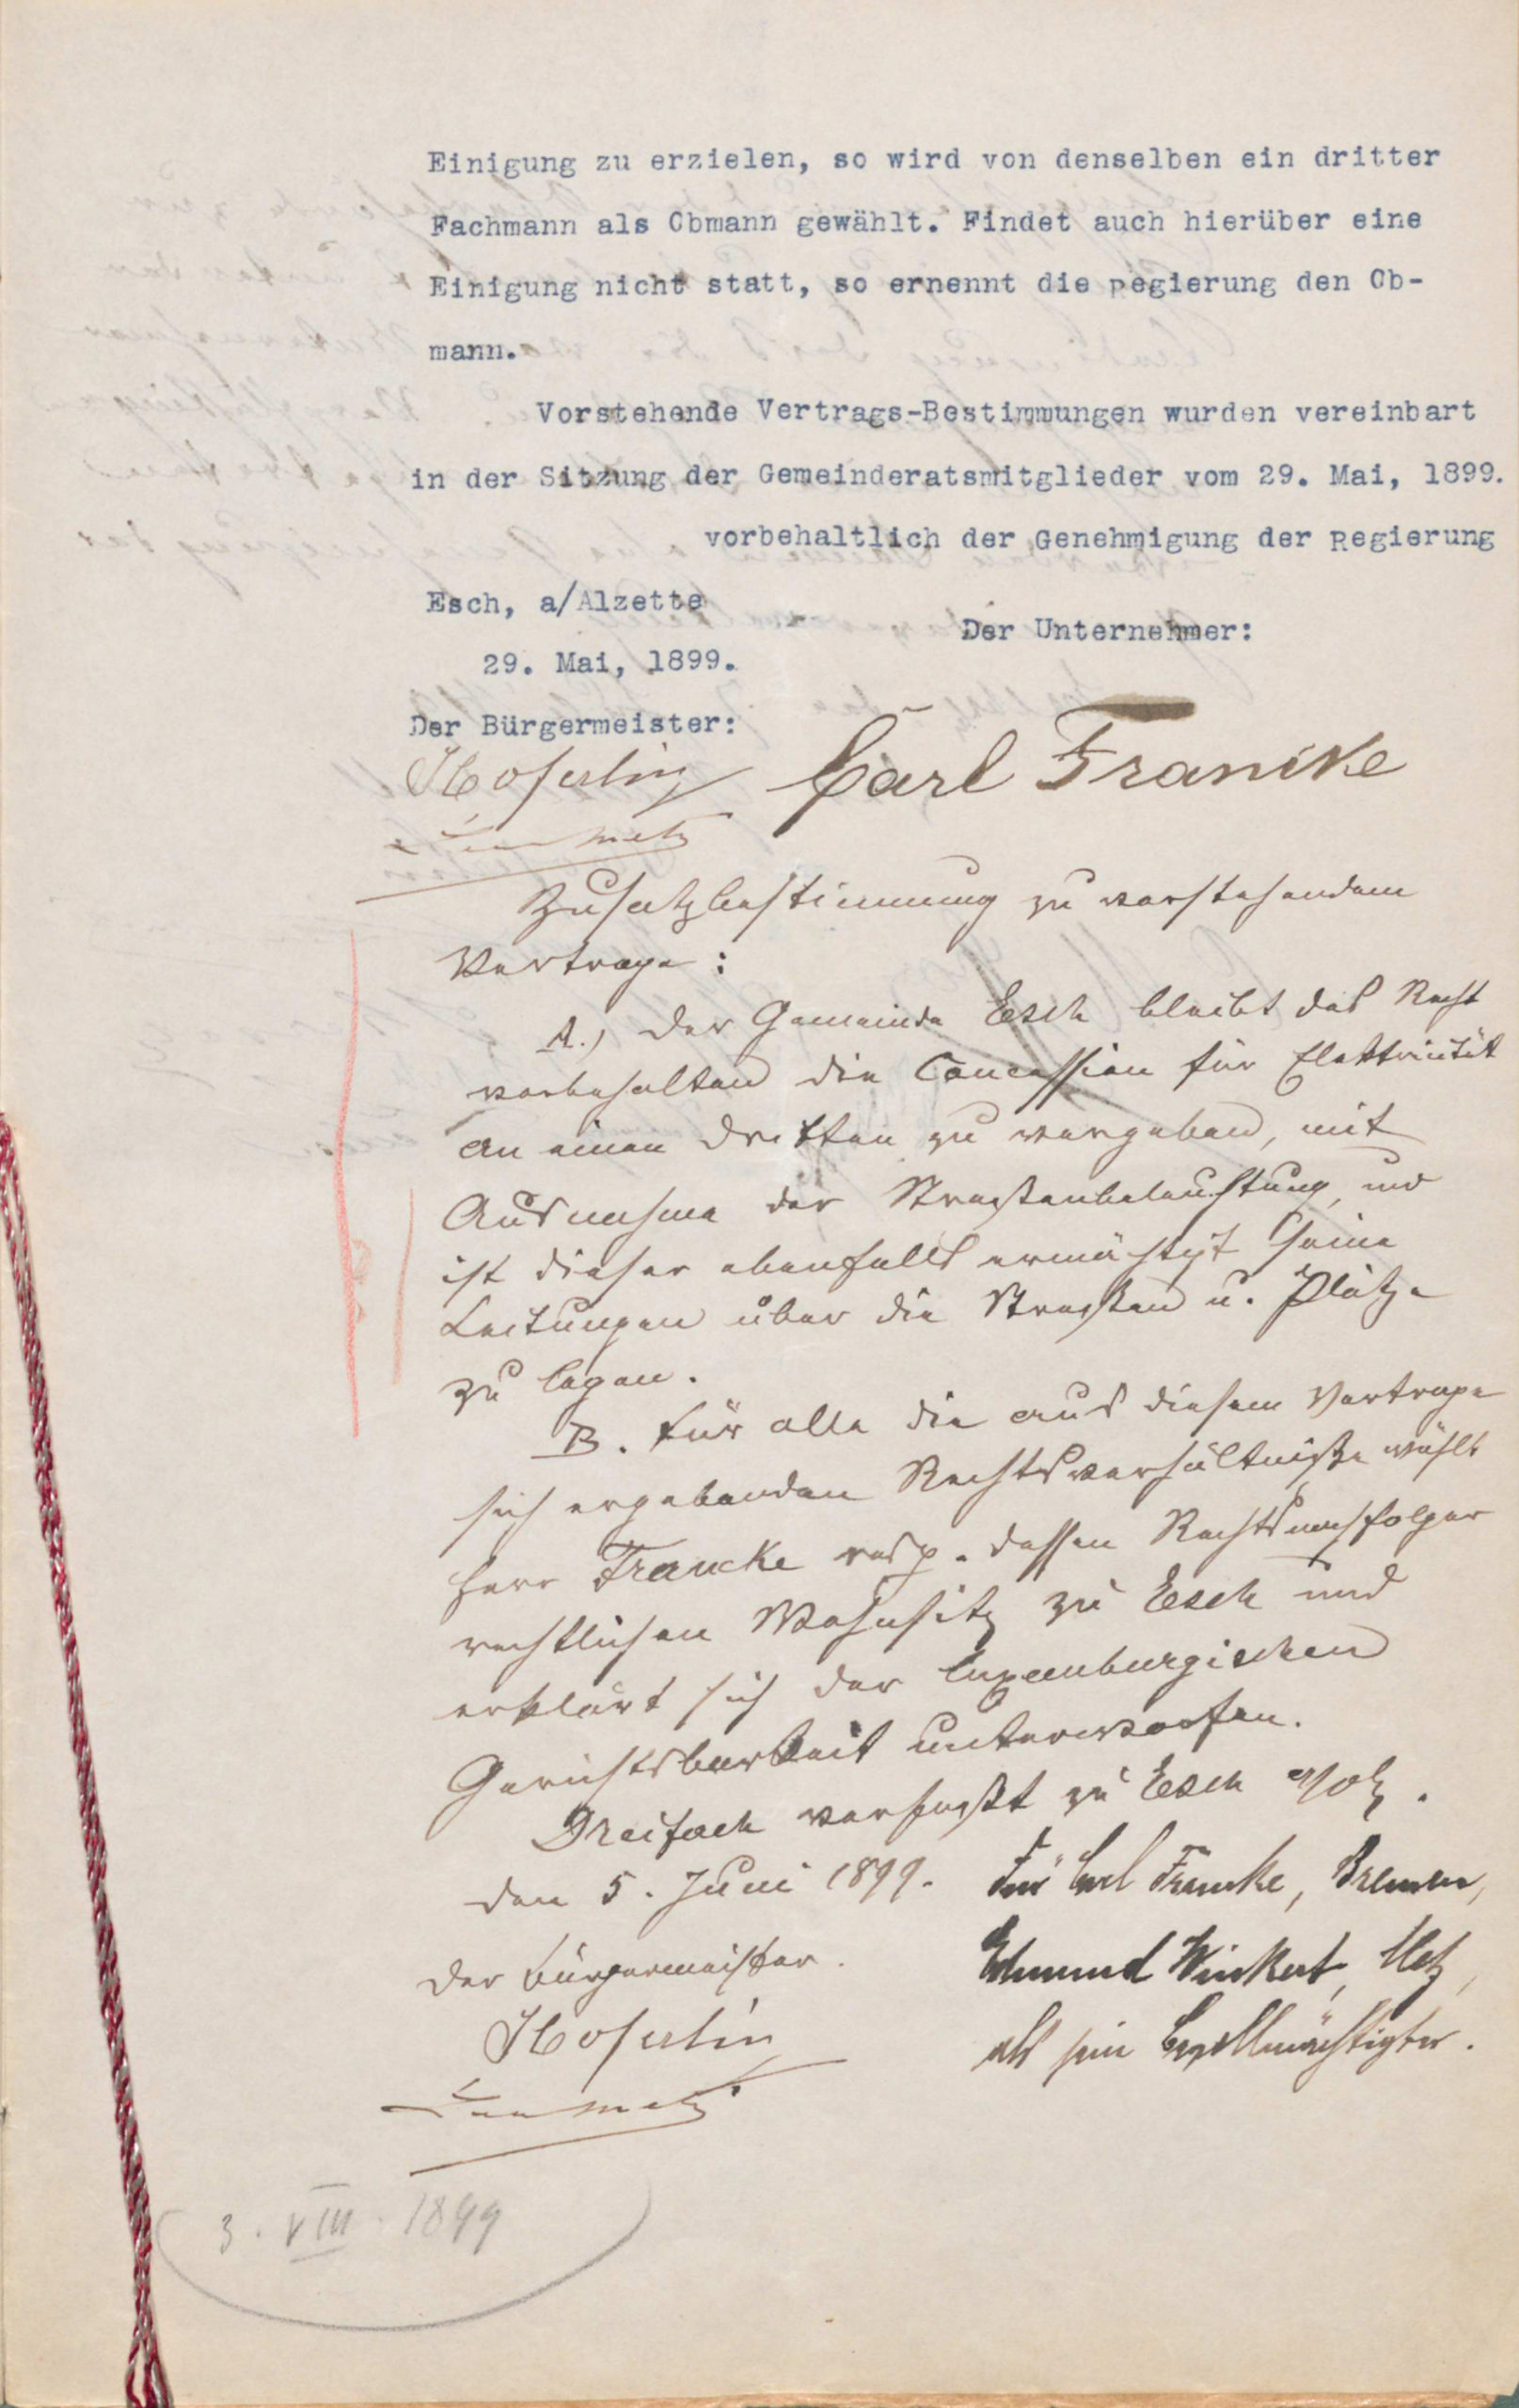 Einigung zu erzielen, so wird von denselben ein dritter
Fachmann als Obmann gewählt. Findet auch hierüber eine
Einigung nicht statt, so ernennt die Regierung den Ob-
mann.
Vorstehende Vertrags-Bestimmungen wurden vereinbart
in der Sitzung der Gemeinderatsmitglieder vom 29. Mai, 1899.
vorbehaltlich der Genehmigung der Regierung
Esch, a/Alzette
Der Unternehmer:
29. Mai, 1899.
Der Bürgermeister:
Carl Francke
Zusatzbestimmung zu vorstehendem
Vertrage:
A.) Der Gemeinde Esch bleibt das Recht
vorbehalten die Concession für Elektricität
an einen Dritten zu vergeben, mit
Ausnahme der Straßenbeleuchtung, und
ist dieser ebenfalls ermächtigt seine
Leitungen über die Straßen u. Plätze
zu legen.
B. Für alle die aus diesem Vertrage
sich ergebenden Rechtsverhältniße wählt
Herr Francke resp. dessen Rechtsnachfolger
rechtlichen Wohnsitz zu Esch und
erklärt sich der luxemburgischen
Gerichtsbarkeit unterworfen.
Dreifach verfaßt zu Esch a/Alz.
den 5. Juni 1899.
Für Carl Francke, Bremen,
Der Bürgermeister.
Edmund Winkert, Metz,
als sein Bevollmächtigter.
3. VIII. 1899